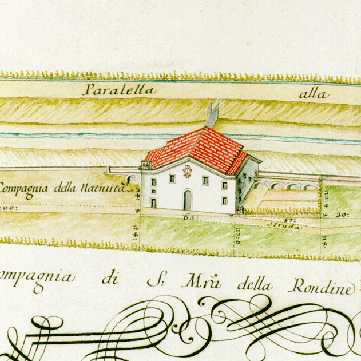 Paralella alla
Compagnia della Natiuità
Strada
ompagnia di S. Mrã della Rondine